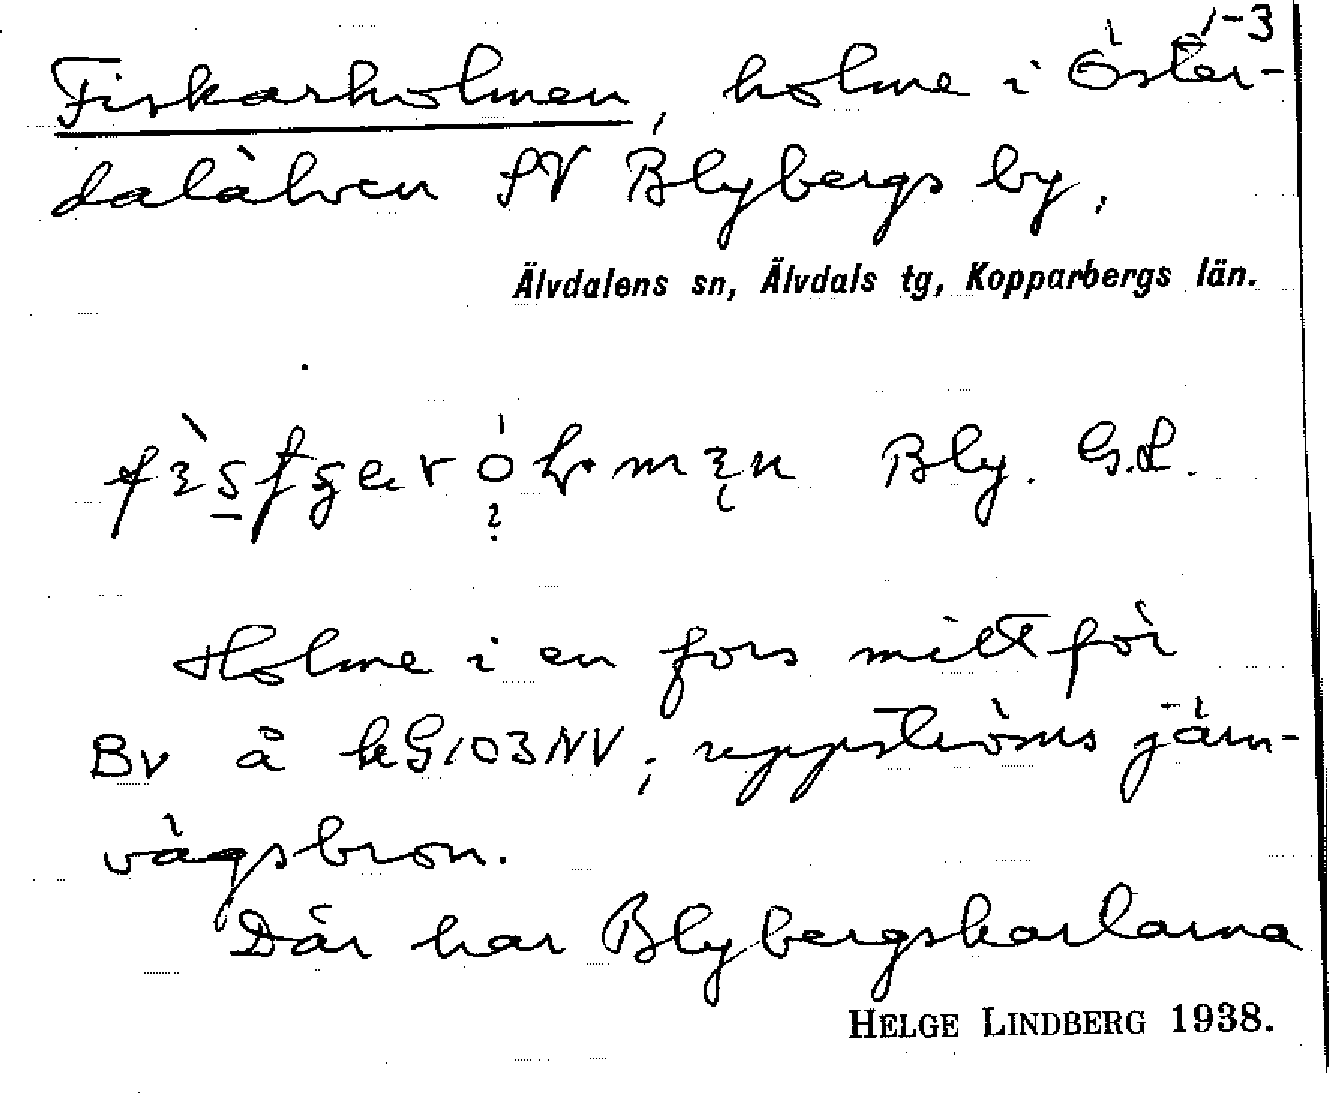 1-3
Fiskarholmen, holme i Öster-
dalälven SV Blybergs by,
Älvdalens sn, Älvdals tg, Kopparbergs län.
Bly. G.L.
Holme i en fors mitt för
Bv å kG103NV; uppströms järn-
vägsbron.
Där har Blybergskarlarna
HELGE LINDBERG 1938.